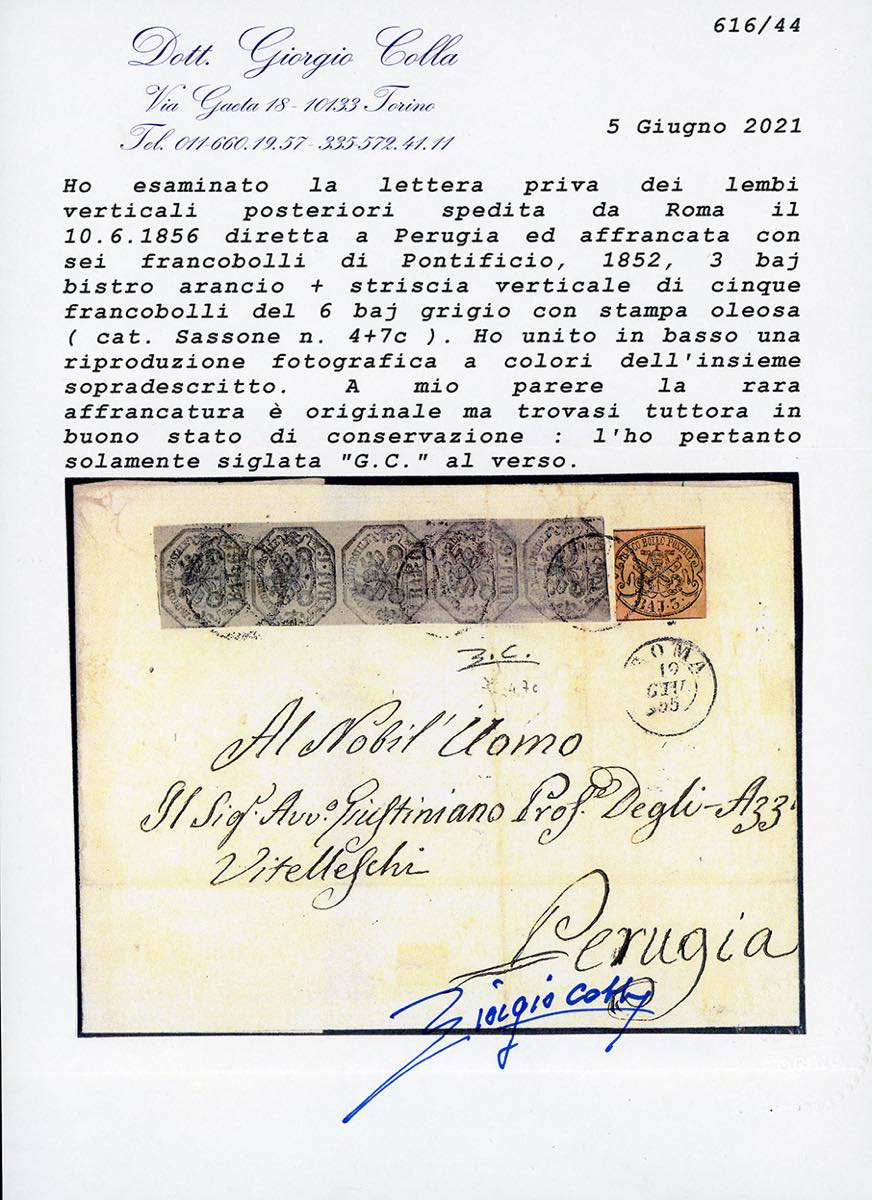 616/44
Dott. Giorgio Colla
Via Gaeta 18 - 10133 Torino
Tel. 011-660.19.57 - 335-572.41.11
5 Giugno 2021
Ho esaminato la lettera priva dei lembi
verticali posteriori spedita da Roma il
10.6.1856 diretta a Perugia ed affrancata con
sei francobolli di Pontificio, 1852, 3 baj
bistro arancio + striscia verticale di cinque
francobolli del 6 baj grigio con stampa oleosa
( cat. Sassone n. 4+7c ). Ho unito in basso una
riproduzione fotografica a colori dell'insieme
sopradescritto. A mio parere la rara
affrancatura è originale ma trovasi tuttora in
buono stato di conservazione : l'ho pertanto
solamente siglata "G.C." al verso.
FRANCO BOLLO POSTALE
BAJ. 6
BAJ. 6
BAJ. 6
BAJ. 6
BAJ. 6
FRANCO BOLLO POSTALE
BAJ. 3
G.C.
4 7c
ROMA
10
GIU
Al Nobil' Uomo
Il Sigr. Avvo. Giustiniano Profe. Degli-Azzi
Vitelleschi
Perugia
Giorgio Colla